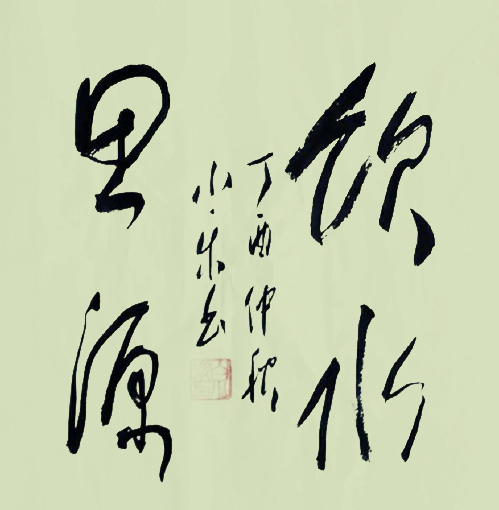 飲水
思源
丁酉仲秋
小朱书